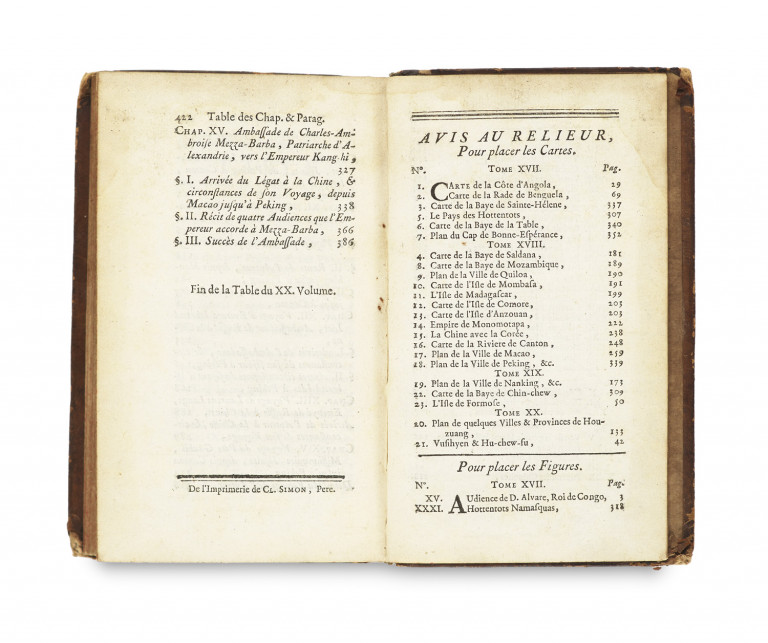 422 Table des Chap. & Parag.
CHAP. XV. Ambaſſade de Charles-Am-
broiſe Mezza-Barba, Patriarche d'A-
lexandrie, vers l'Empereur Kang-hi,
327
§. I. Arrivée du Légat à la Chine, &
circonſtances de ſon Voyage, depuis
Macao juſqu'à Peking, 338
§. II. Récit de quatre Audiences que l'Em-
pereur accorde à Mezza-Barba, 366
§. III. Succès de l'Ambaſſade, 386
Fin de la Table du XX. Volume.
De l'Imprimerie de CL. SIMON, Pere.
AVIS AU RELIEUR,
Pour placer les Cartes.
N°. TOME XVII. Pag.
1. CARTE de la Côte d'Angola, 29
2. Carte de la Rade de Benguela, 69
3. Carte de la Baye de Sainte-Hélene, 337
5. Le Pays des Hottentots, 307
6. Carte de la Baye de la Table, 340
7. Plan du Cap de Bonne-Eſpérance, 352
TOME XVIII.
4. Carte de la Baye de Saldana, 181
8. Carte de la Baye de Mozambique, 189
9. Plan de la Ville de Quiloa, 190
10. Carte de l'Iſle de Mombaſa, 191
11. L'Iſle de Madagaſcar, 199
12. Carte de l'Iſle de Comore, 203
13. Carte de l'Iſle d'Anzouan, 203
14. Empire de Monomotapa, 222
15. La Chine avec la Corée, 238
16. Carte de la Riviere de Canton, 248
17. Plan de la Ville de Macao, 259
18. Plan de la Ville de Peking, &c. 339
TOME XIX.
19. Plan de la Ville de Nanking, &c. 173
22. Carte de la Baye de Chin-chew, 309
23. L'Iſle de Formoſe, 50
TOME XX.
20. Plan de quelques Villes & Provinces de Hou-
zuang, 133
21. Vuſihyen & Hu-chew-fu, 42
Pour placer les Figures.
N°. TOME XVII. Pag.
XV. Audience de D. Alvare, Roi de Congo, 3
XXXI. Hottentots Namaſquas, 318